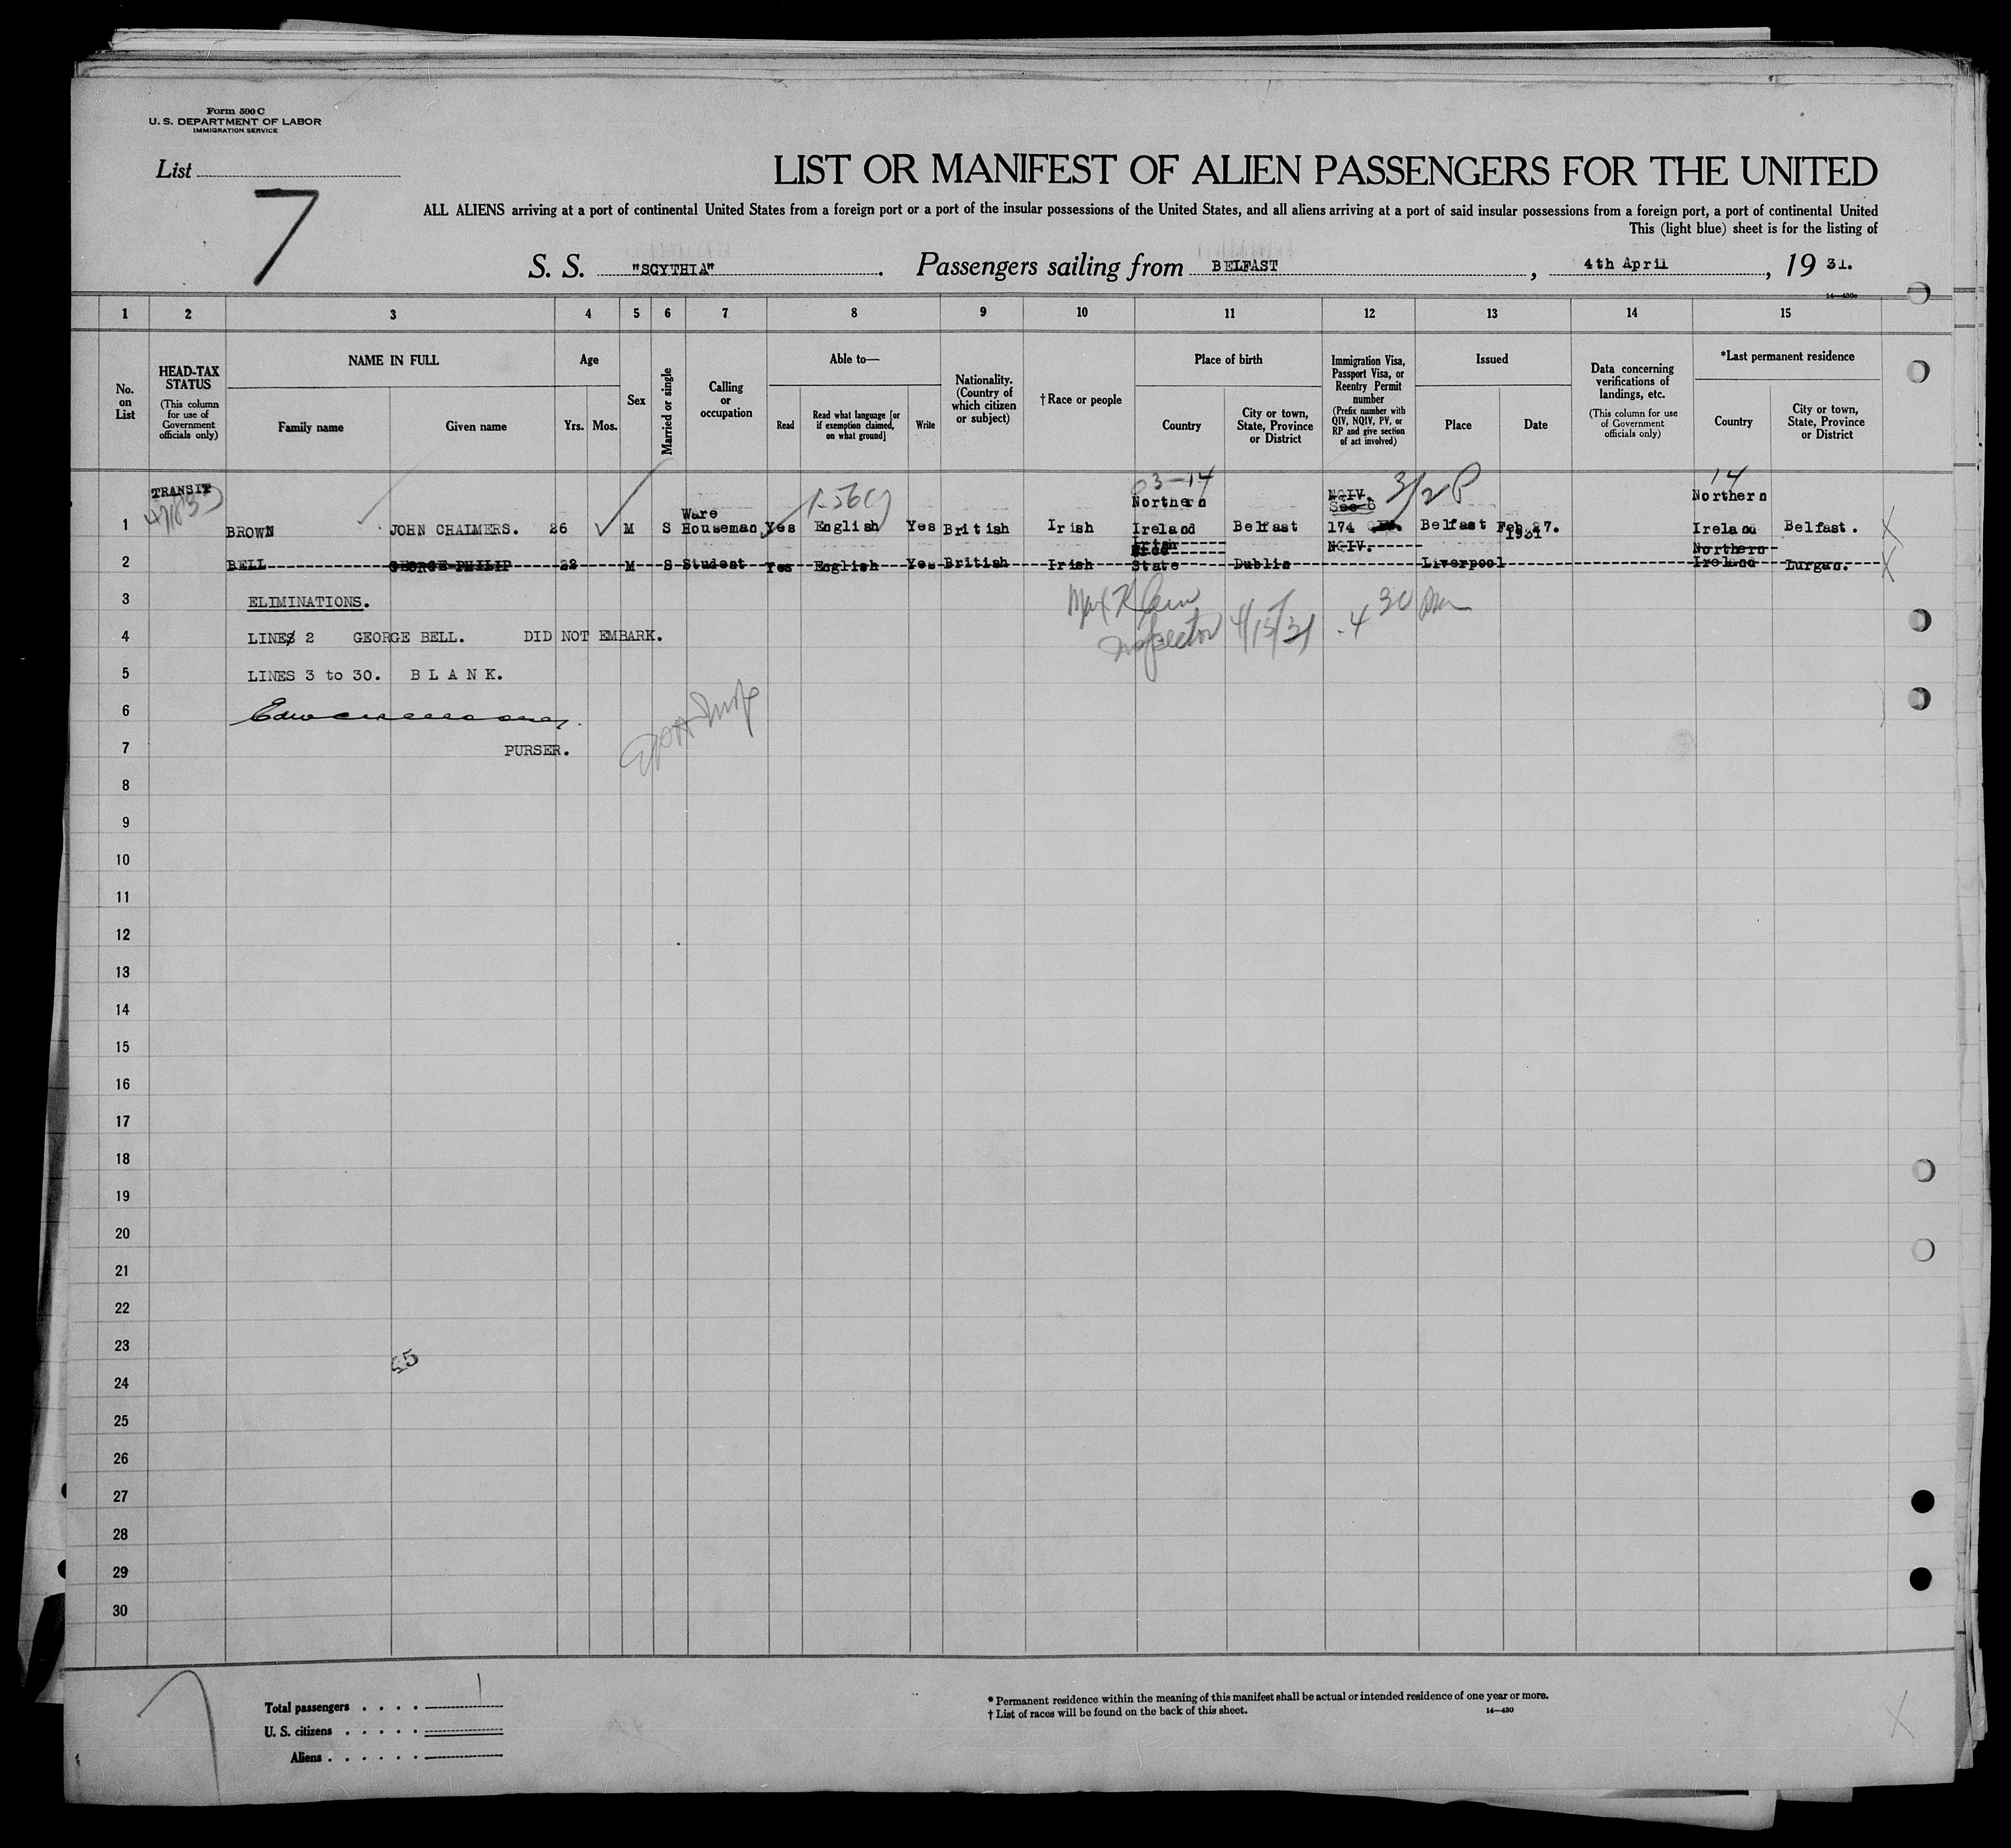 Form 500 C
U. S. DEPARTMENT OF LABOR
IMMIGRATION SERVICE
List
7
LIST OR MANIFEST OF ALIEN PASSENGERS FOR THE UNITED
ALL ALIENS arriving at a port of continental United States from a foreign port or a port of the insular possessions of the United States, and all aliens arriving at a port of said insular possessions from a foreign port, a port of continental United
This (light blue) sheet is for the listing of
S. S. "SCYTHIA". Passengers sailing from BELFAST, 4th April, 19 31.
1 2 3 4 5 6 7 8 9 10 11 12 13 14 15
No. on List
HEAD-TAX STATUS
(This column for use of Government officials only)
NAME IN FULL
Family name Given name
Age
Yrs. Mos.
Sex
Married or single
Calling or occupation
Able to—
Read
Read what language [or if exemption claimed, on what ground]
Write
Nationality. (Country of which citizen or subject)
†Race or people
Place of birth
Country
City or town, State, Province or District
Immigration Visa, Passport Visa, or Reentry Permit number
(Prefix number with QIV, NQIV, PV, or RP and give section of act involved)
Issued
Place Date
Data concerning verifications of landings, etc.
(This column for use of Government officials only)
*Last permanent residence
Country
City or town, State, Province or District
TRANSIT 03-14 NQIV. 3/2 P 14
Northern Sec 6 Northern
Ware
1 BROWN JOHN CHALMERS. 26 M S Houseman Yes English Yes British Irish Ireland Belfast 174 Belfast Feb 27. Ireland Belfast.
1931
Irish NQIV. Northern
Free
2 BELL GEORGE PHILIP 22 M S Student Yes English Yes British Irish State Dublin Liverpool Ireland Lurgan.
3 ELIMINATIONS.
4 LINES 2 GEORGE BELL. DID NOT EMBARK.
Inspector 4/13/31 4 30
5 LINES 3 to 30. B L A N K.
6
7 PURSER.
8
9
10
11
12
13
14
15
16
17
18
19
20
21
22
23
45
24
25
26
27
28
29
30
Total passengers . . . . 1
U. S. citizens . . . . .
Aliens . . . . . .
* Permanent residence within the meaning of this manifest shall be actual or intended residence of one year or more.
† List of races will be found on the back of this sheet.
14—430